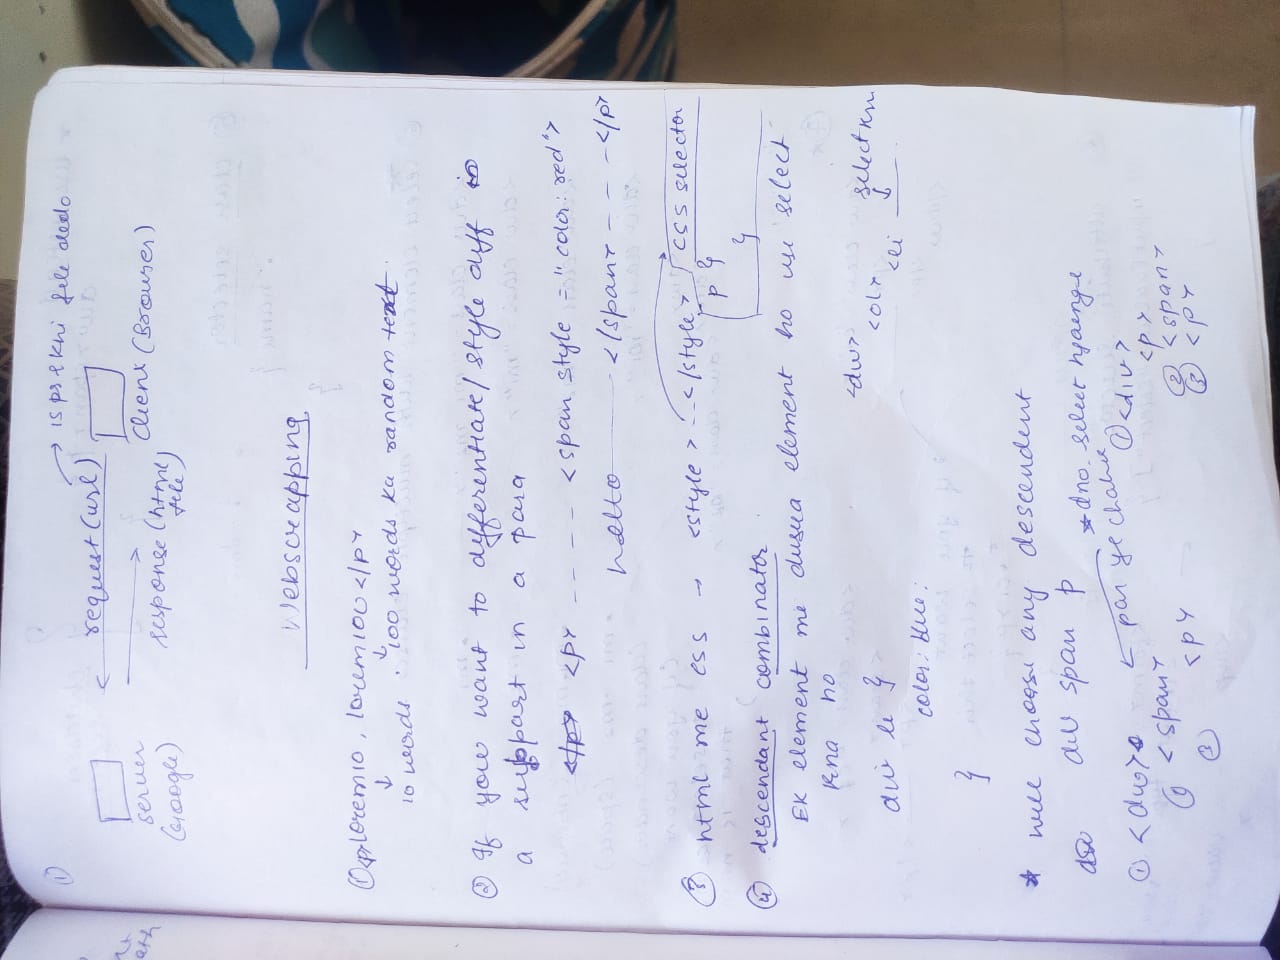 ①
is pr rkhi file dedo
request (url)
server
(Google)
Client (Browser)
response (html
file)
Webscrapping
① <p>lorem10, lorem100 </p>
10 words . 100 words ka random text.
② If you want to differentiate/style diff
a subpart in a para
<p> ---- <span style = "color: red">
hello </span> --- </p>
③ html me css → <style> --- </style> CSS selector
p {
}
④ descendant combinator
Ek element me dusra element ho use select
krna ho
div li {
color: blue;
}
<div>
<ol>
<li
select krna
* will choose any descendent
div span p
* dno. select hjaenge
par ye chahie
① <div>
① <span>
② <p>
① <div>
<p>
② <span>
③ <p>